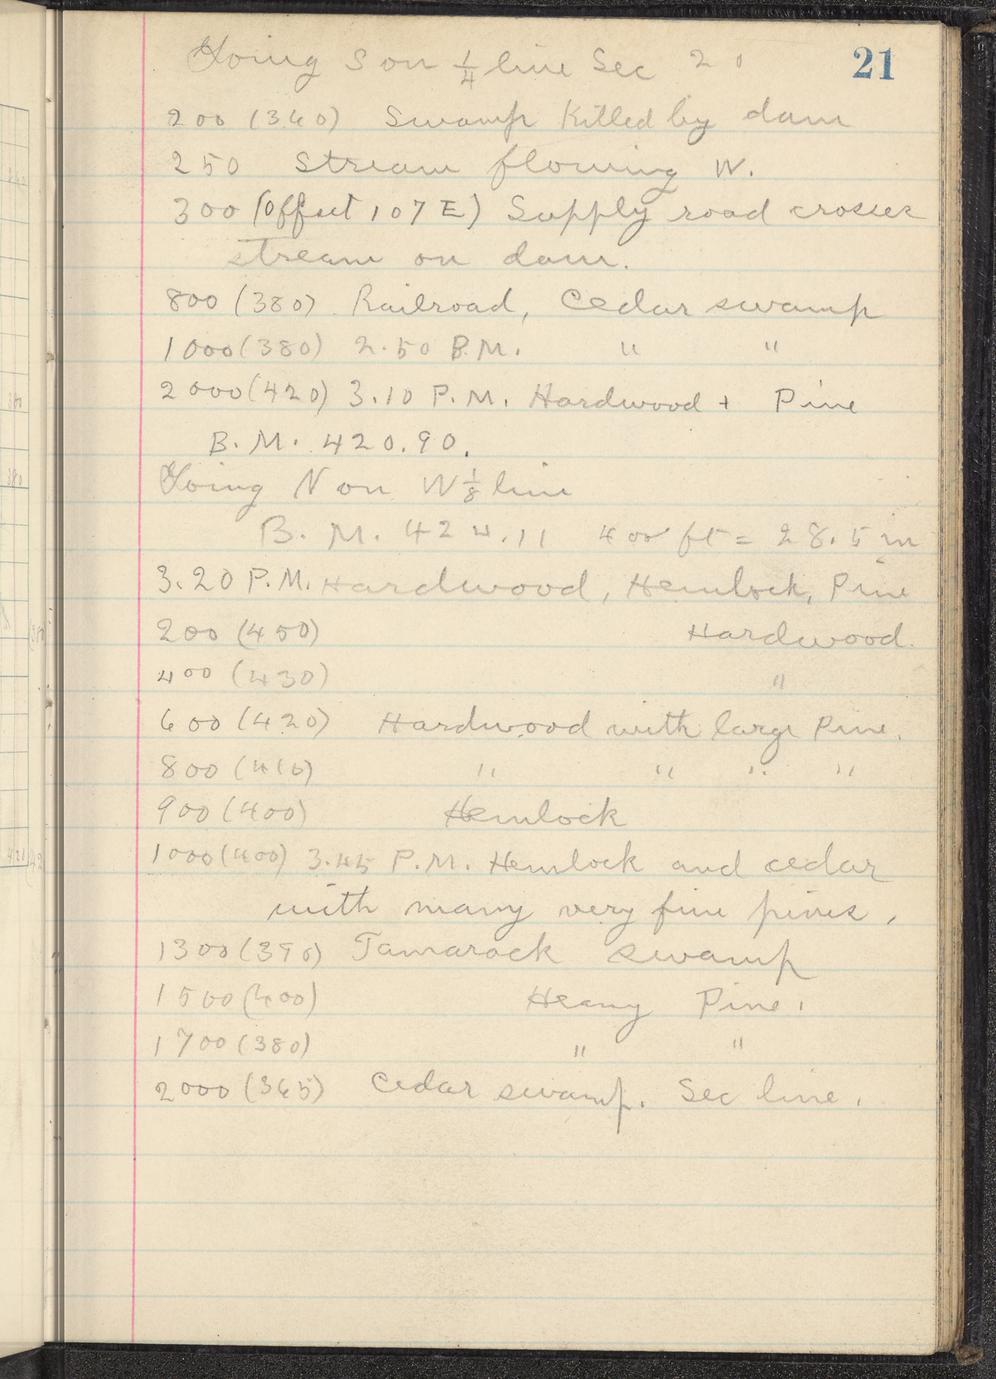 21
Going S on 1/4 line Sec 20
200 (360) Swamp Killed by dam
250 Stream flowing W.
300 (Offset 107 E) Supply road crosses
stream on dam.
800 (380) Railroad, Cedar swamp
1000 (380) 2.50 P.M. " "
2000 (420) 3.10 P.M. Hardwood + Pine
B.M. 420.90.
Going N on W 1/8 line
B.M. 424.11 400 ft = 28.5 in
3.20 P.M. Hardwood, Hemlock, Pine
200 (450) Hardwood.
400 (430) "
600 (420) Hardwood with large Pine.
800 (410) " " " "
900 (400) Hemlock
1000 (400) 3.45 P.M. Hemlock and cedar
with many very fine pines.
1300 (390) Tamarack swamp
1500 (400) Heavy Pine.
1700 (380) " "
2000 (365) Cedar swamp. Sec line.